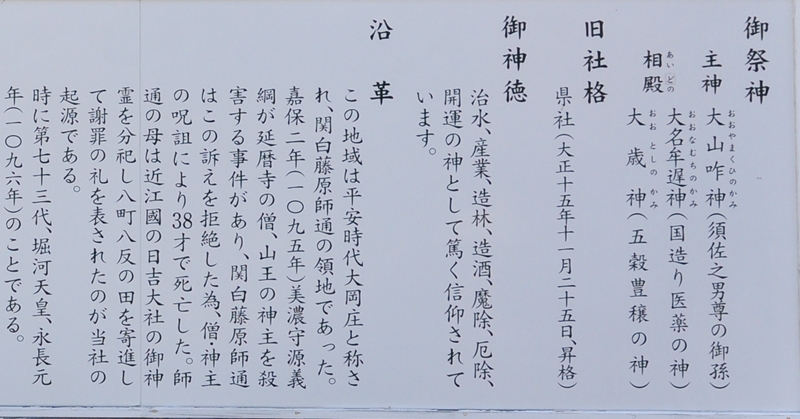 御祭神
主神 大山咋神(須佐之男尊の御孫)
おおやまくひのかみ
相殿 大名牟遅神(国造り医薬の神)
あいどの おおなむちのかみ
大歳神(五穀豊穣の神)
おおとしのかみ
旧社格
県社(大正十五年十一月二十五日、昇格)
御神徳
治水、産業、造林、造酒、魔除、厄除、
開運の神として篤く信仰されて
います。
沿革
この地域は平安時代大岡庄と称さ
れ、関白藤原師通の領地であった。
嘉保二年(一〇九五年)美濃守源義
綱が延暦寺の僧、山王の神主を殺
害する事件があり、関白藤原師通
はこの訴えを拒絶した為、僧・神主
の呪詛により38才で死亡した。師
通の母は近江國の日吉大社の御神
霊を分祀し八町八反の田を寄進し
て謝罪の礼を表されたのが当社の
起源である。
時に第七十三代、堀河天皇、永長元
年(一〇九六年)のことである。